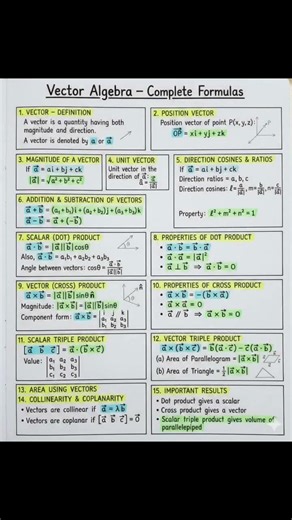 Vector Algebra – Complete Formulas
1. VECTOR – DEFINITION
A vector is a quantity having both
magnitude and direction.
A vector is denoted by a or a⃗
2. POSITION VECTOR
Position vector of point P(x, y, z):
OP⃗ = xi + yj + zk
3. MAGNITUDE OF A VECTOR
If a⃗ = ai + bj + ck
|a⃗| = √a² + b² + c²
4. UNIT VECTOR
Unit vector in the
direction of a⃗:
â = a⃗/|a⃗|
5. DIRECTION COSINES & RATIOS
If a⃗ = ai + bj + ck:
Direction ratios = a, b, c
Direction cosines: ℓ = a/|a⃗|, m = b/|a⃗|, n = c/|a⃗|
Property: ℓ² + m² + n² = 1
6. ADDITION & SUBTRACTION OF VECTORS
a⃗ + b⃗ = (a₁ + b₁)i + (a₂ + b₂)j + (a₃ + b₃)k
a⃗ - b⃗ = a⃗ + (-b⃗)
7. SCALAR (DOT) PRODUCT
a⃗ · b⃗ = |a⃗||b⃗| cosθ
Also, a⃗ · b⃗ = a₁b₁ + a₂b₂ + a₃b₃
Angle between vectors: cosθ = a⃗·b⃗/|a⃗||b⃗|
8. PROPERTIES OF DOT PRODUCT
• a⃗ · b⃗ = b⃗ · a⃗
• a⃗ · a⃗ = |a⃗|²
• a⃗ ⊥ b⃗ ⇒ a⃗ · b⃗ = 0
9. VECTOR (CROSS) PRODUCT
a⃗ × b⃗ = |a⃗||b⃗| sinθ n̂
Magnitude: |a⃗ × b⃗| = |a⃗||b⃗| sinθ
Component form: a⃗ × b⃗ =
| i j k |
| a₁ a₂ a₃ |
| b₁ b₂ b₃ |
10. PROPERTIES OF CROSS PRODUCT
• a⃗ × b⃗ = -(b⃗ × a⃗)
• a⃗ × a⃗ = 0
• a⃗ // b⃗ ⇒ a⃗ × b⃗ = 0
11. SCALAR TRIPLE PRODUCT
[a⃗ b⃗ c⃗] = a⃗ · (b⃗ × c⃗)
Value:
| a₁ a₂ a₃ |
| b₁ b₂ b₃ |
| c₁ c₂ c₃ |
12. VECTOR TRIPLE PRODUCT
a⃗ × (b⃗ × c⃗) = b⃗(a⃗ · c⃗) - c⃗(a⃗ · b⃗)
(a) Area of Parallelogram = |a⃗ × b⃗|
(b) Area of Triangle = ½|a⃗ × b⃗|
13. AREA USING VECTORS
14. COLLINEARITY & COPLANARITY
• Vectors are collinear if a⃗ = λb⃗
• Vectors are coplanar if [a⃗ b⃗ c⃗] = 0⃗
15. IMPORTANT RESULTS
• Dot product gives a scalar
• Cross product gives a vector
• Scalar triple product gives volume of
parallelepiped